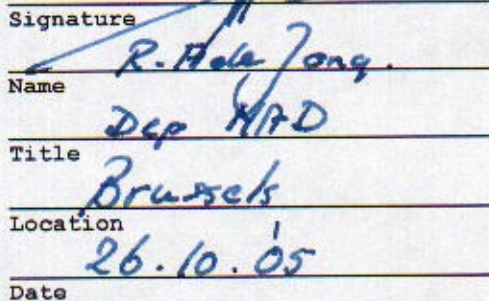 Signature
R. A de Jong.
Name
Dep MAD
Title
Brussels
Location
26.10.05
Date